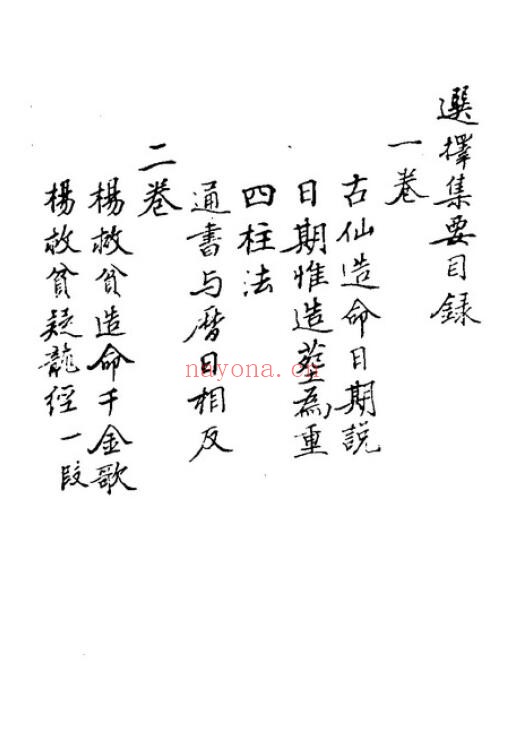 選擇集要目錄
一卷
古仙造命日期説
日期惟造葬為重
四柱法
通書与曆日相反
二卷
楊救貧造命千金歌
楊救貧疑龍經一段
nayona.cn